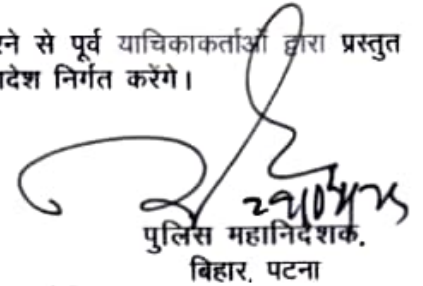 से पूर्व याचिकाकर्ताओं द्वारा प्रस्तुत
निर्गत करेंगे।
पुलिस महानिदेशक,
बिहार, पटना